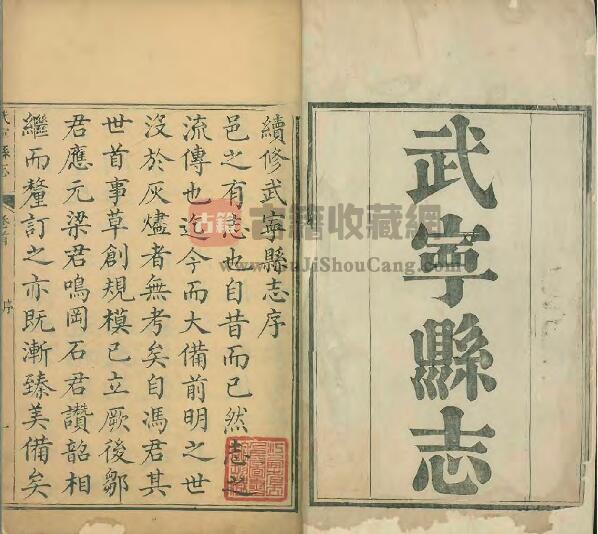 武寧縣志
續修武寧縣志序
邑之有志也自昔而已然志之
流傳也迄今而大備前明之世
沒於灰燼者無考矣自馮君其
世首事草創規模已立厥後鄒
君應元梁君鳴岡石君讚韶相
繼而釐訂之亦既漸臻美備矣
序
一
古籍
古籍收藏網
www.GuJiShouCang.com